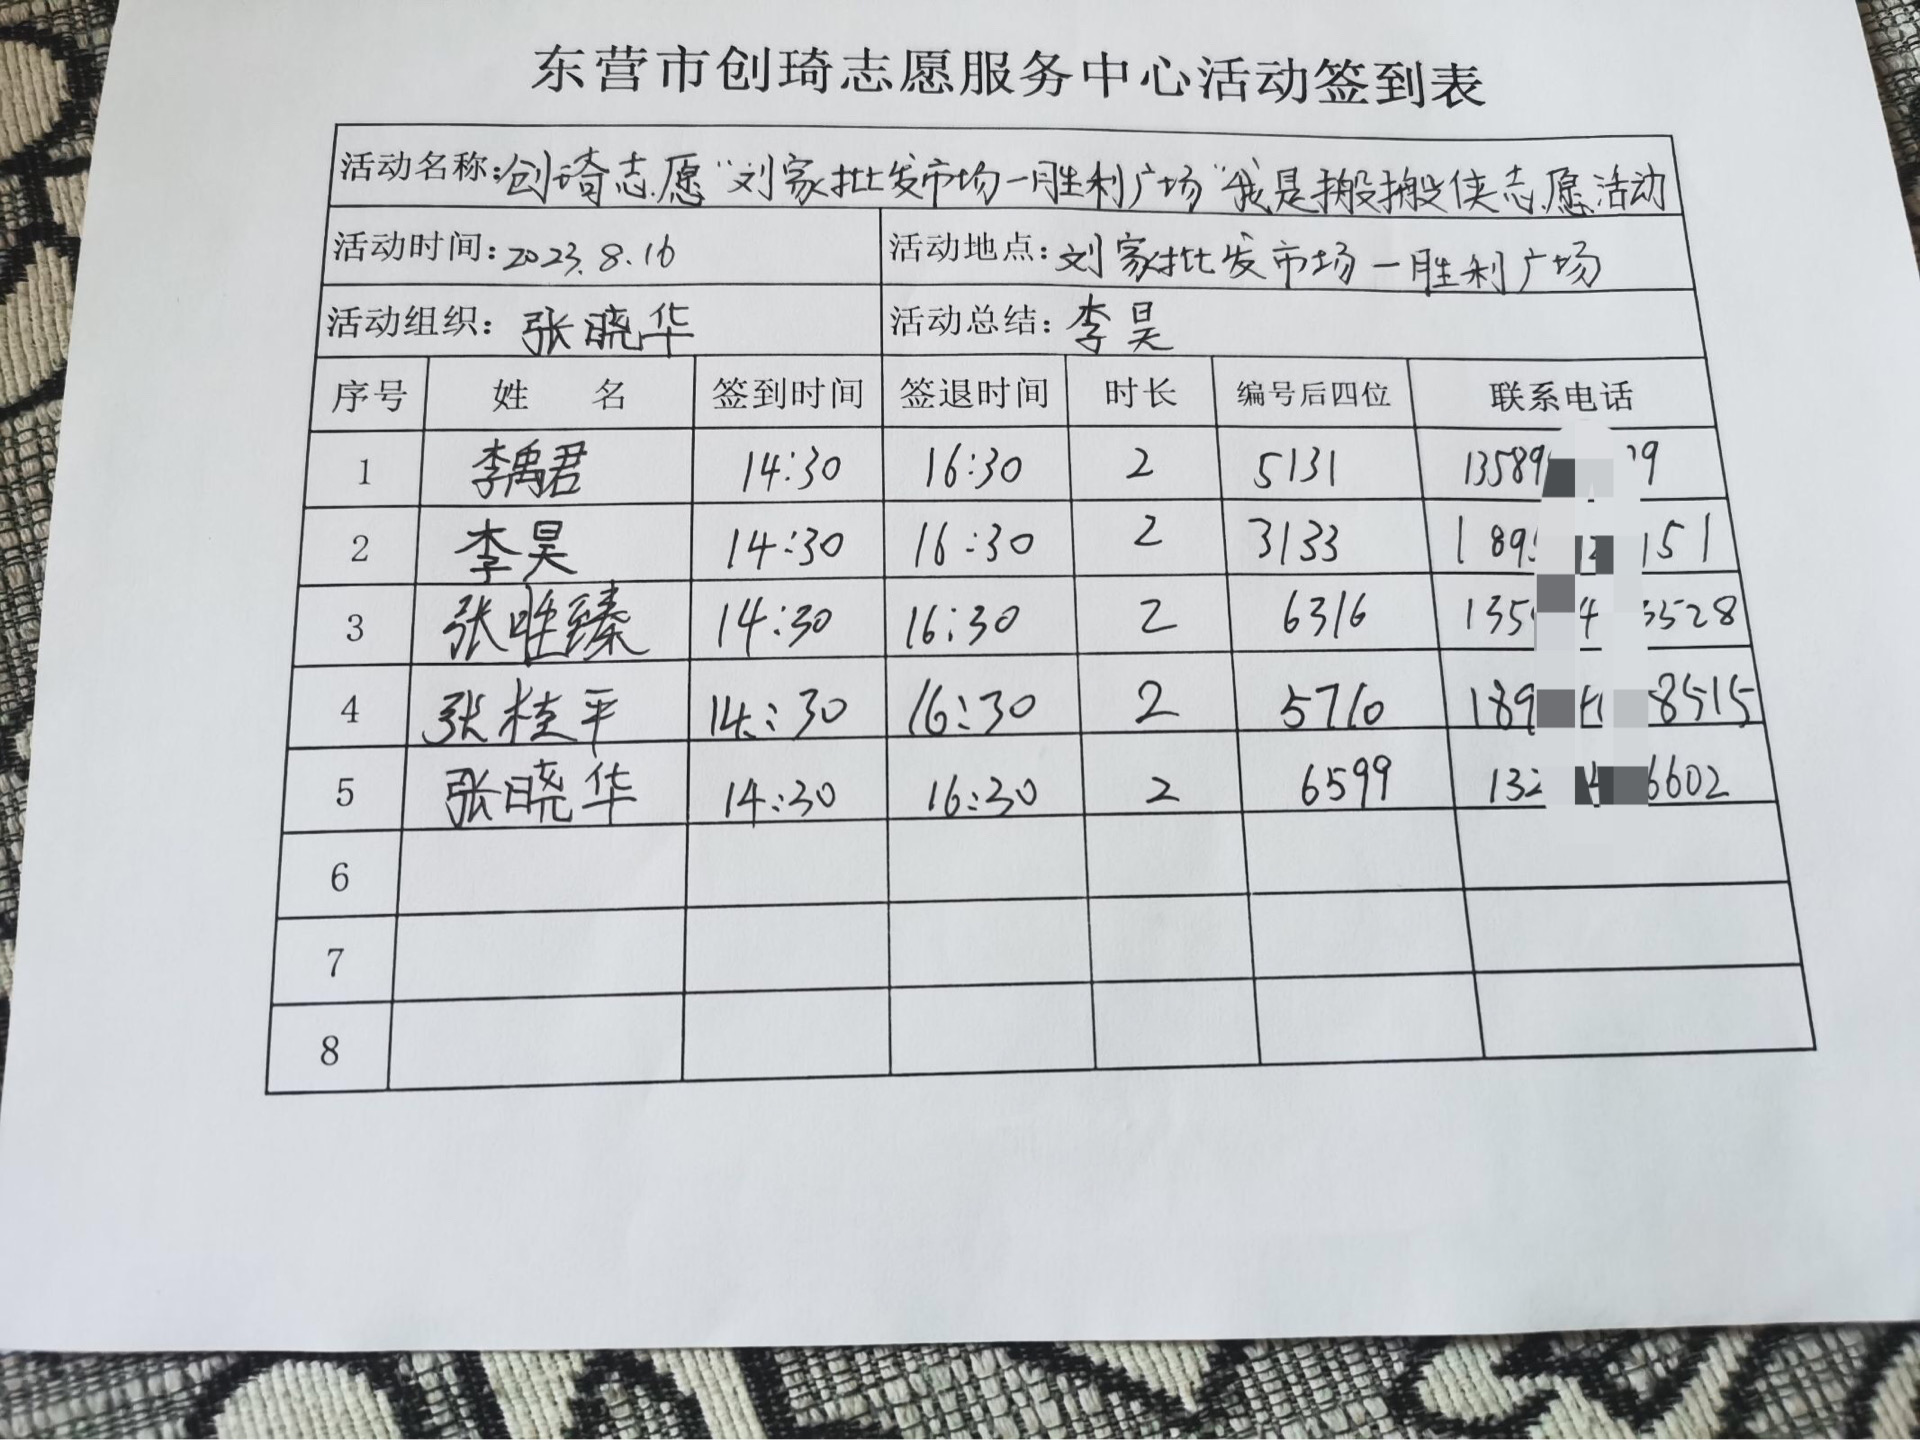 东营市创琦志愿服务中心活动签到表
活动名称:创琦志愿“刘家批发市场一胜利广场”我是搬搬侠志愿活动
活动时间:2023.8.16 活动地点:刘家批发市场一胜利广场
活动组织:张晓华 活动总结:李昊
序号 姓 名 签到时间 签退时间 时长 编号后四位 联系电话
1 李禹君 14:30 16:30 2 5131 13589 9
2 李昊 14:30 16:30 2 3133 189 151
3 张唯臻 14:30 16:30 2 6316 135 4 3528
4 张桂平 14:30 16:30 2 5710 189 8515
5 张晓华 14:30 16:30 2 6599 132 6602
6
7
8